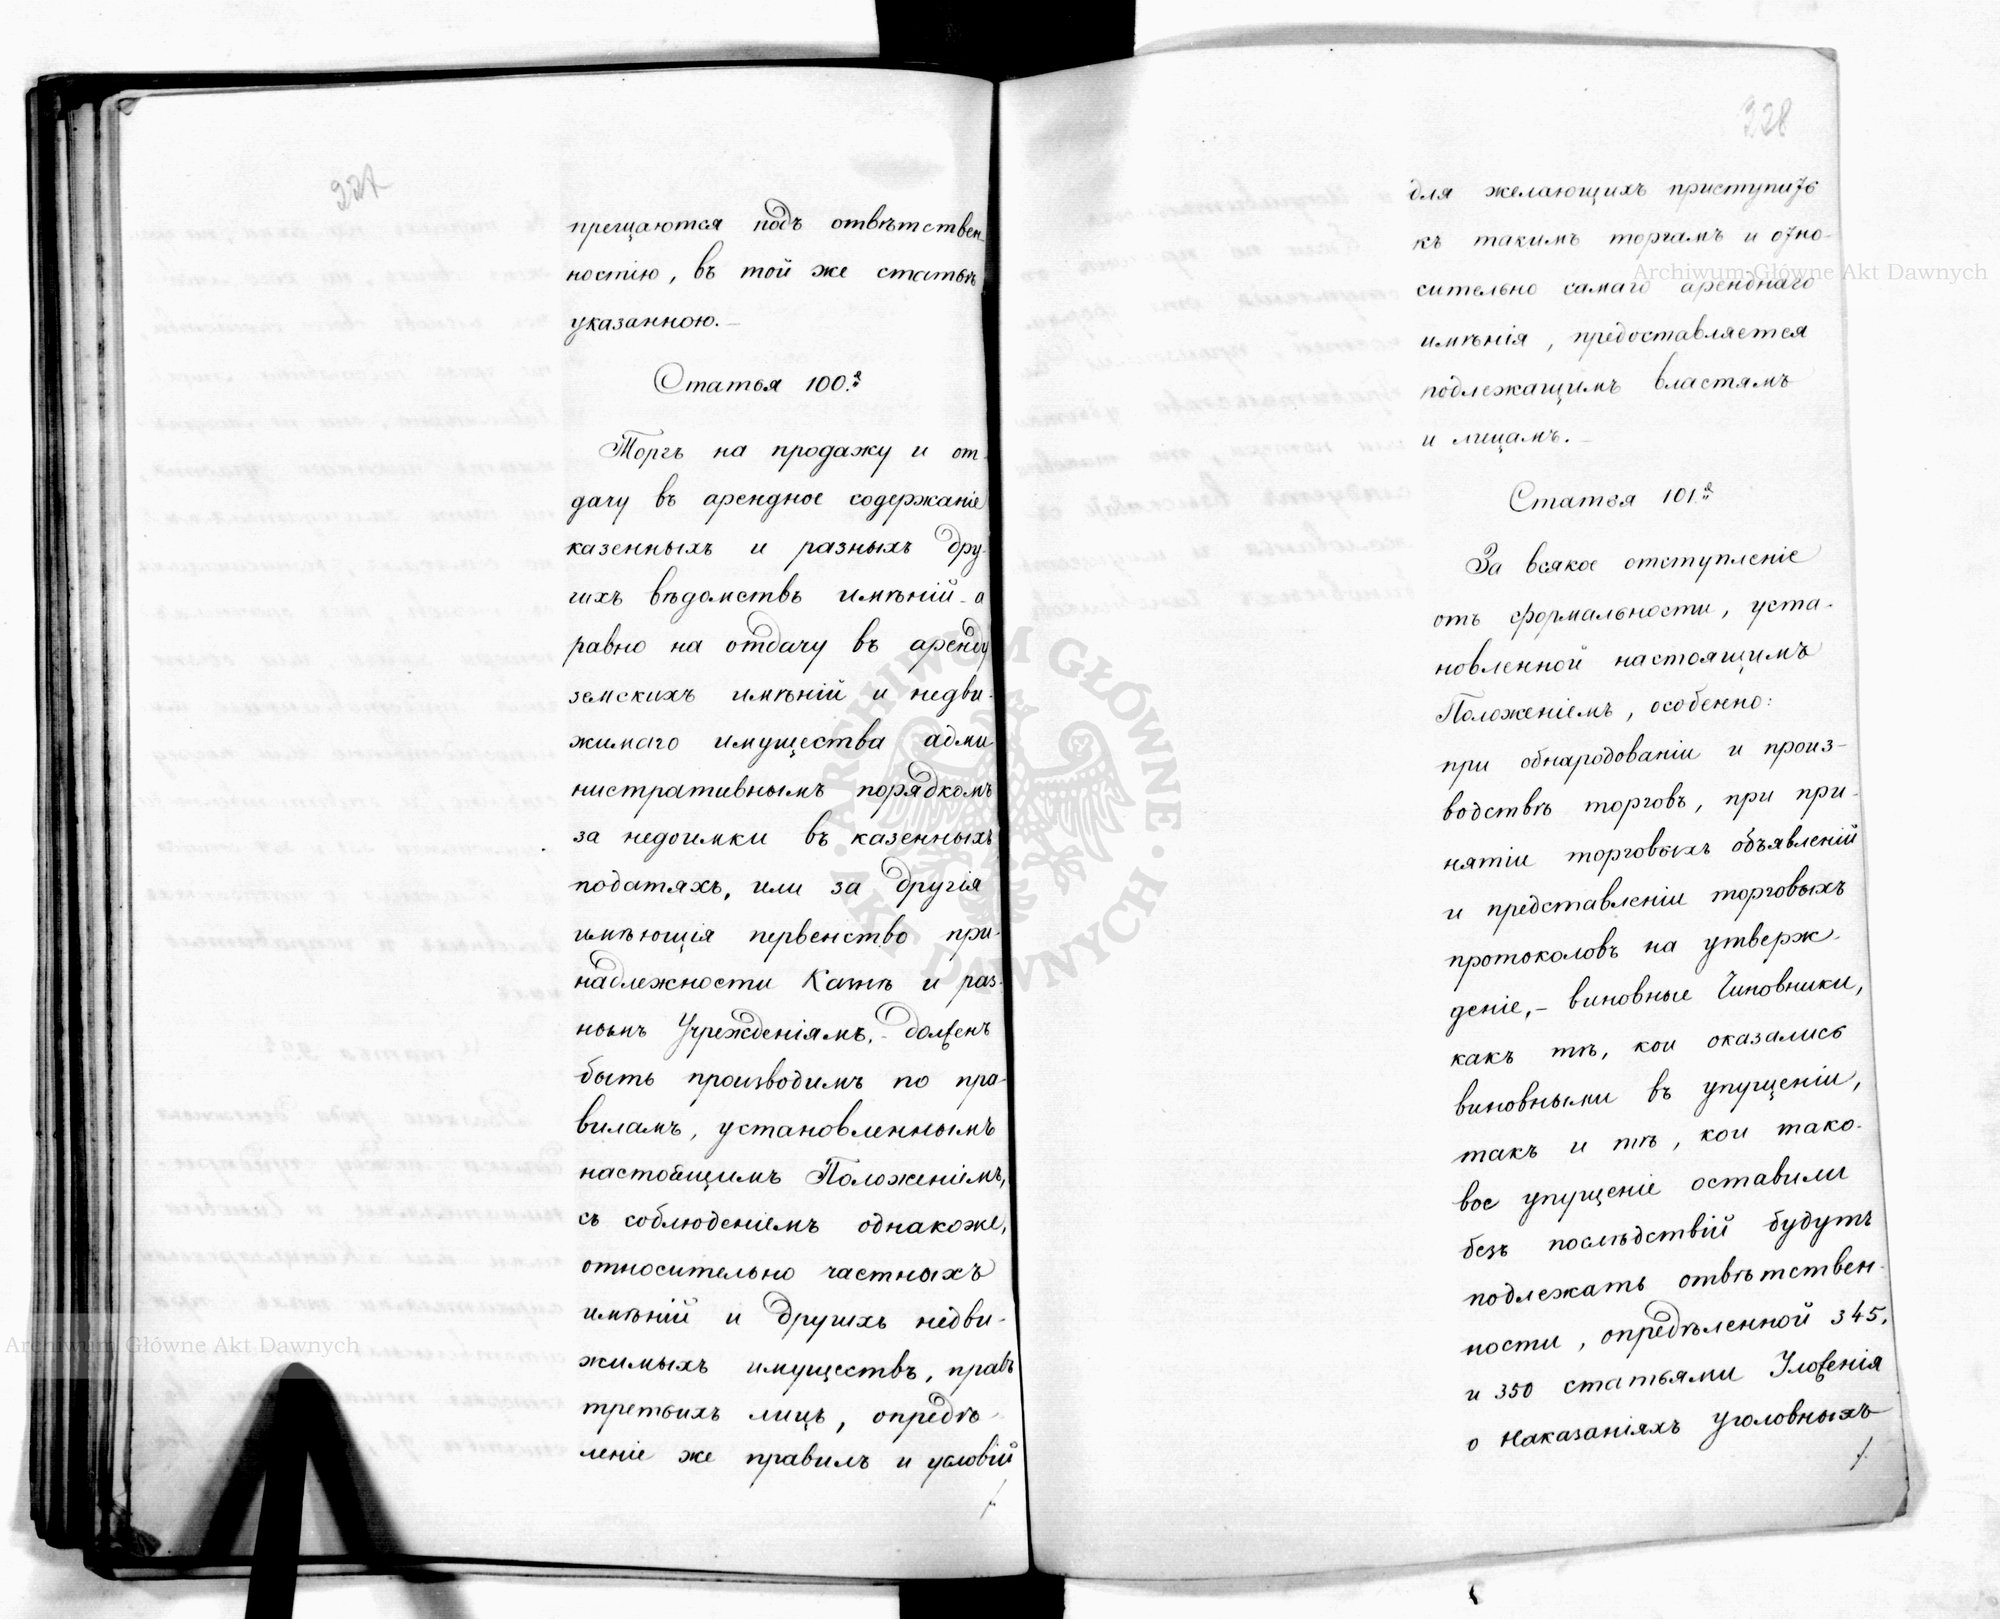 227
прещаются подъ отвѣтствен-
ностію, въ той же статьѣ
указанною.
Статья 100.я
Торгъ на продажу и от-
дачу въ арендное содержаніе
казенныхъ и разныхъ дру-
гихъ вѣдомствъ имѣній а
равно на отдачу въ аренду
земскихъ имѣній и недви-
жимаго имущества адми
нистративнымъ порядкомъ
за недоимки въ казенныхъ
податяхъ, или за другія
имѣющія первенство при-
надлежности Казнѣ и раз-
нымъ Учрежденіямъ. - долженъ
быть производимъ по пра-
виламъ, установленнымъ
настоящимъ Положеніемъ,
съ соблюденіемъ однакоже,
относительно частныхъ
имѣній и другихъ недви-
жимыхъ имуществъ, правъ
третьихъ лицъ, опредѣ-
леніе же правилъ и условій
228
для желающихъ приступить
къ такимъ торгамъ и отно-
сительно самаго аренднаго
имѣнія, предоставляется
подлежащимъ властямъ
и лицамъ.
Статья 101.я
За всякое отступленіе
отъ формальности, уста-
новленной настоящимъ
Положеніемъ, особенно:
при обнародованіи и произ-
водствѣ торговъ, при при-
нятіи торговыхъ объявленій
и представленіи торговыхъ
протоколовъ на утверж-
деніе, - виновные Чиновники,
какъ тѣ, кои оказались
виновными въ упущеніи,
такъ и тѣ, кои тако-
вое упущеніе оставили
безъ послѣдствій будутъ
подлежать отвѣтствен-
ности, опредѣленной 345,
и 350 статьями Уложенія
о Наказаніяхъ уголовныхъ
Archiwum Główne Akt Dawnych
Archiwum Główne Akt Dawnych
ARCHIWUM GŁÓWNE · AKT DAWNYCH ·